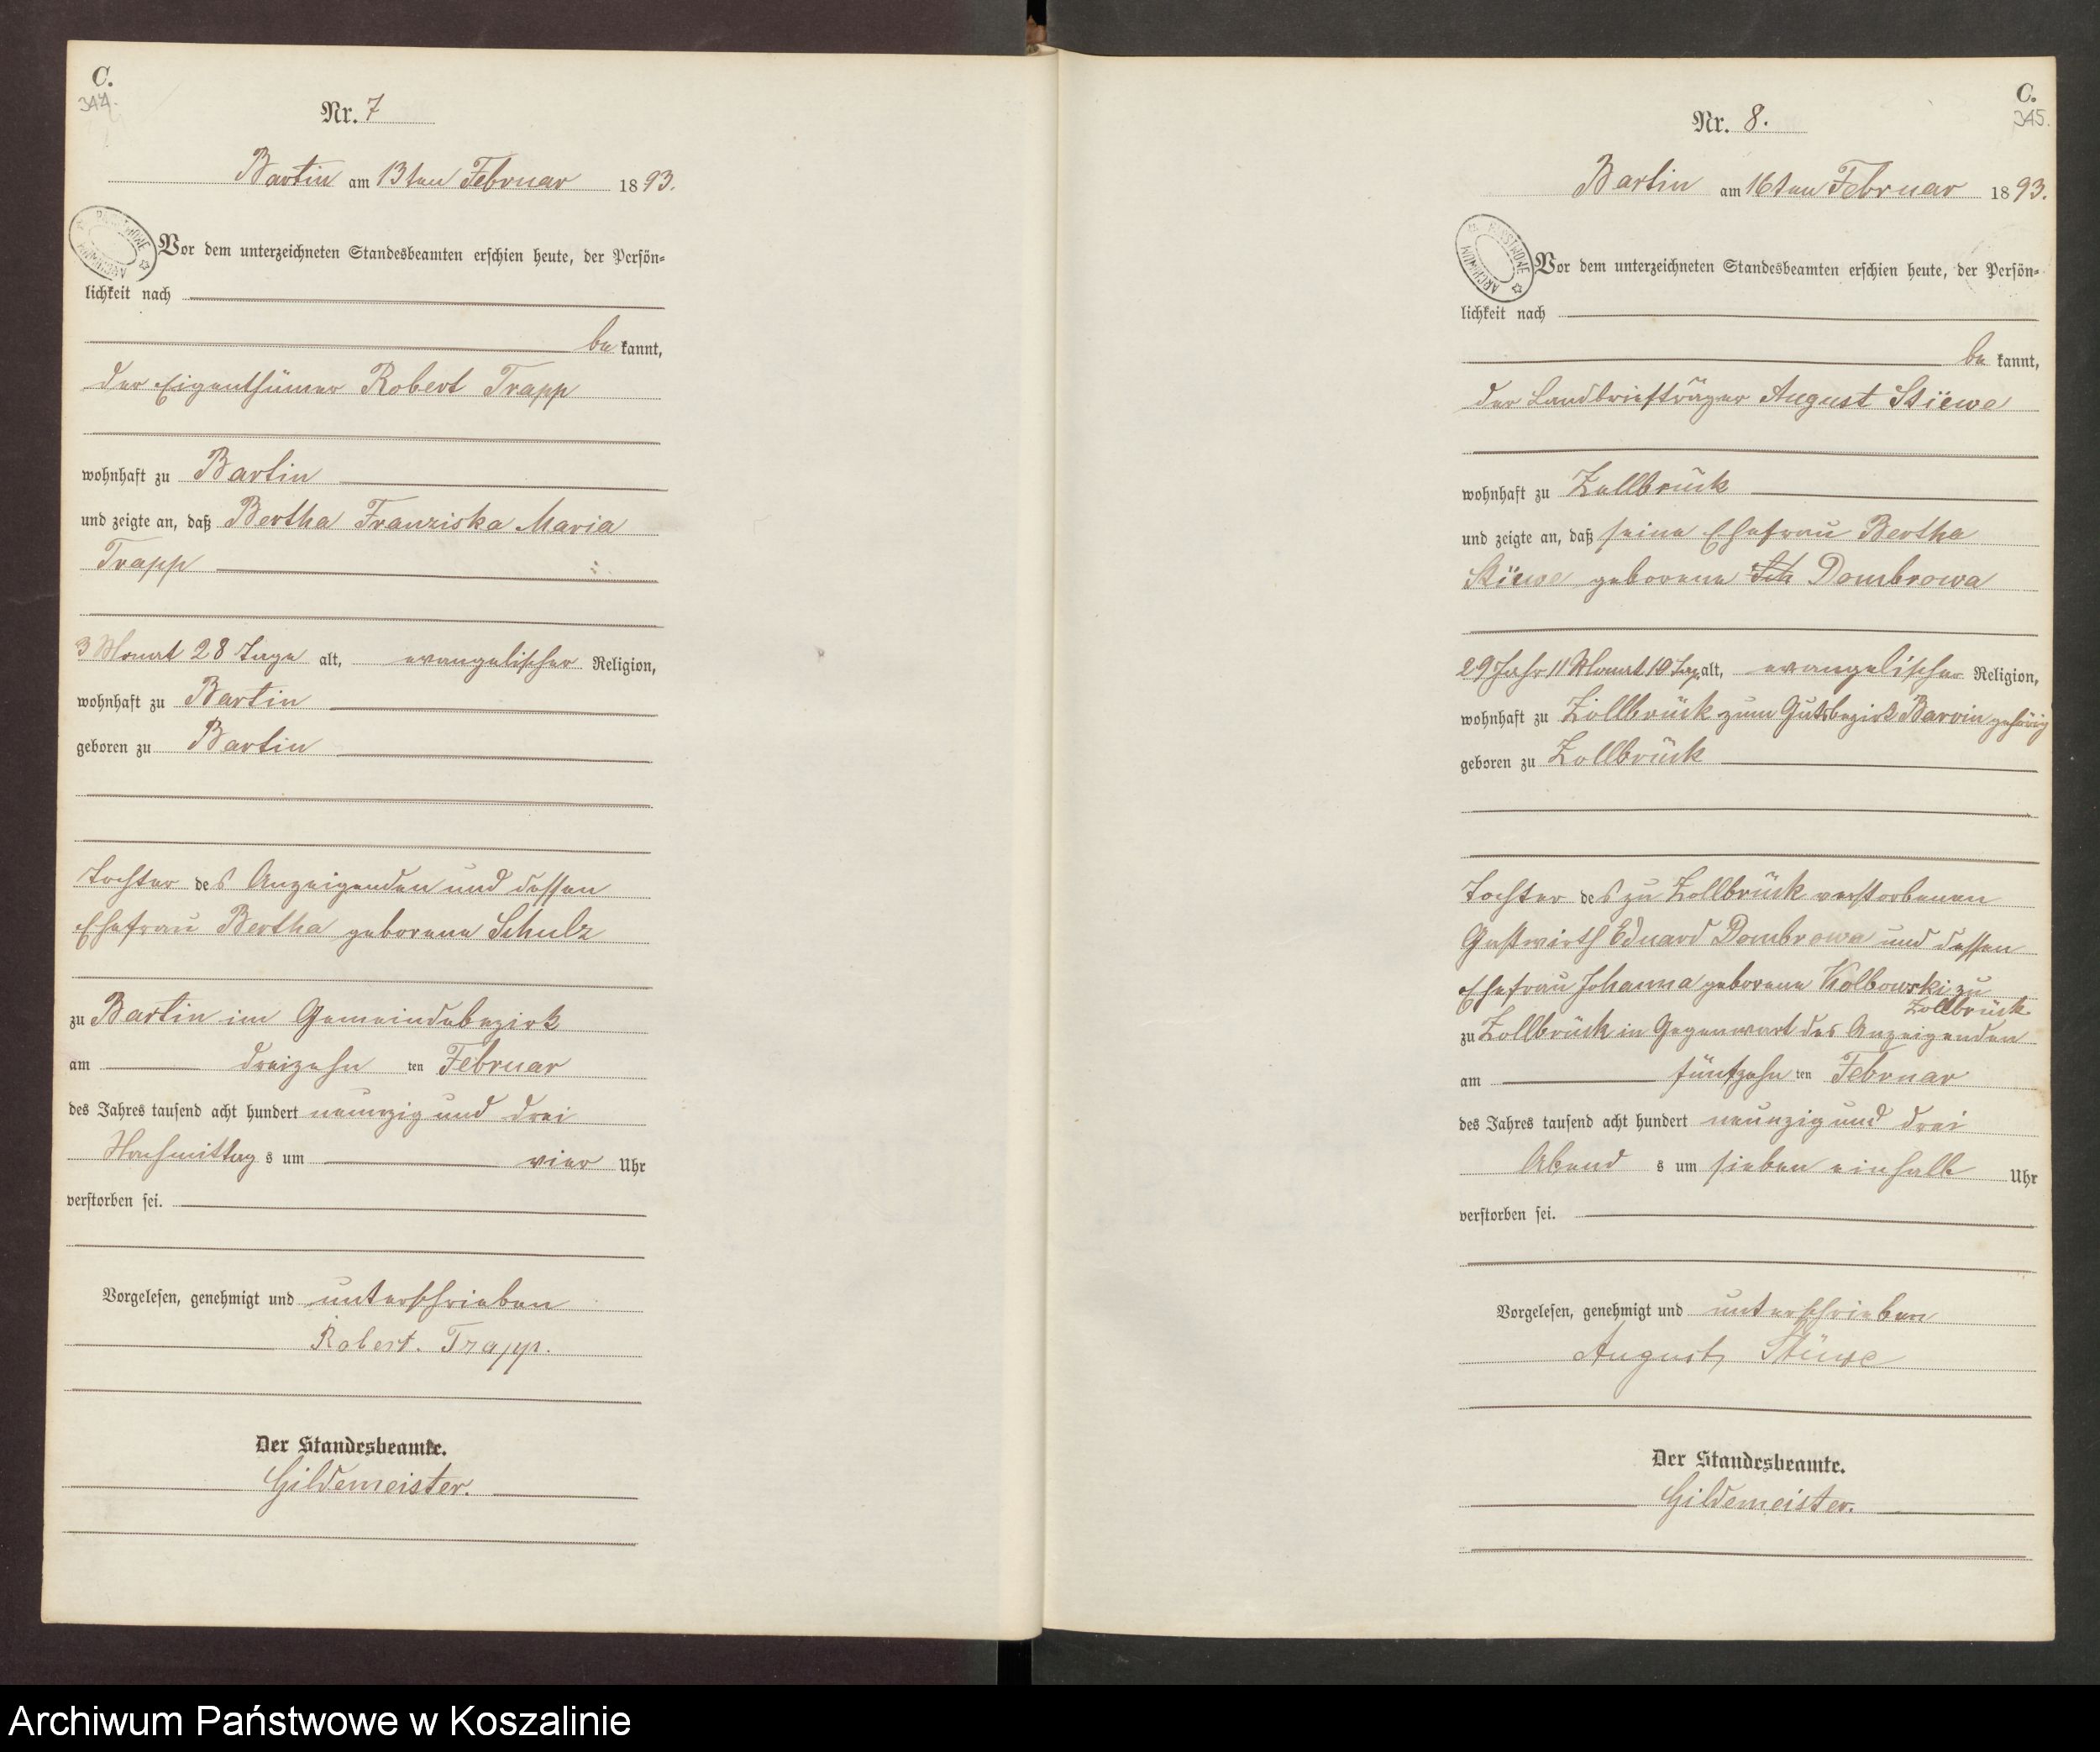 C.
344.
Nr. 7
Bartin am 13ten Februar 1893.
Vor dem unterzeichneten Standesbeamten erschien heute, der Persön=
lichkeit nach
be kannt,
der Eigenthümer Robert Trapp
wohnhaft zu Bartin
und zeigte an, daß Bertha Franziska Maria
Trapp
3 Monat 28 Tage alt, evangelischer Religion,
wohnhaft zu Bartin
geboren zu Bartin
Tochter des Anzeigenden und dessen
Ehefrau Bertha geborene Schulz
zu Bartin im Gemeindebezirk
am dreizehn ten Februar
des Jahres tausend acht hundert neunzig und drei
Nachmittag s um vier Uhr
verstorben sei.
Vorgelesen, genehmigt und unterschrieben
Robert. Trapp.
Der Standesbeamte.
Gildemeister.
C.
345.
Nr. 8.
Bartin am 16ten Februar 1893.
Vor dem unterzeichneten Standesbeamten erschien heute, der Persön=
lichkeit nach
be kannt,
der Landbriefträger August Stüwe
wohnhaft zu Zollbrück
und zeigte an, daß seine Ehefrau Bertha
Stüwe geborene Dombrowa
29 Jahr 11 Monat 10 Tag alt, evangelischer Religion,
wohnhaft zu Zollbrück zum Gutsbezirk Barvin gehörig
geboren zu Zollbrück
Tochter des zu Zollbrück verstorbenen
Gastwirth Eduard Dombrowa und dessen
Ehefrau Johanna geborene Kolbowski zu
Zollbrück
zu Zollbrück in Gegenwart des Anzeigenden
am fünfzehn ten Februar
des Jahres tausend acht hundert neunzig und drei
Abend s um sieben einhalb Uhr
verstorben sei.
Vorgelesen, genehmigt und unterschrieben
August Stüwe
Der Standesbeamte.
Gildemeister.
Archiwum Państwowe w Koszalinie